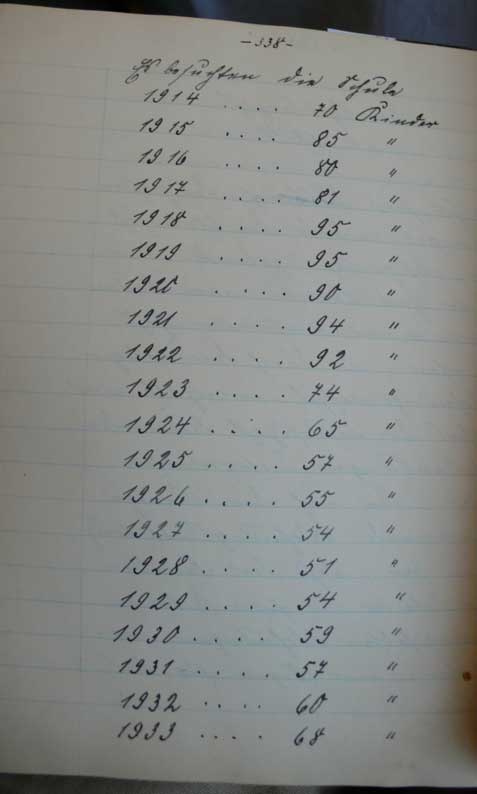 - 338 -
Es besuchten die Schule
1914 .... 70 Kinder
1915 .... 85 "
1916 .... 80 "
1917 .... 81 "
1918 .... 95 "
1919 .... 95 "
1920 .... 90 "
1921 .... 94 "
1922 .... 92 "
1923 .... 74 "
1924 .... 65 "
1925 .... 57 "
1926 .... 55 "
1927 .... 54 "
1928 .... 51 "
1929 .... 54 "
1930 .... 59 "
1931 .... 57 "
1932 .... 60 "
1933 .... 68 "